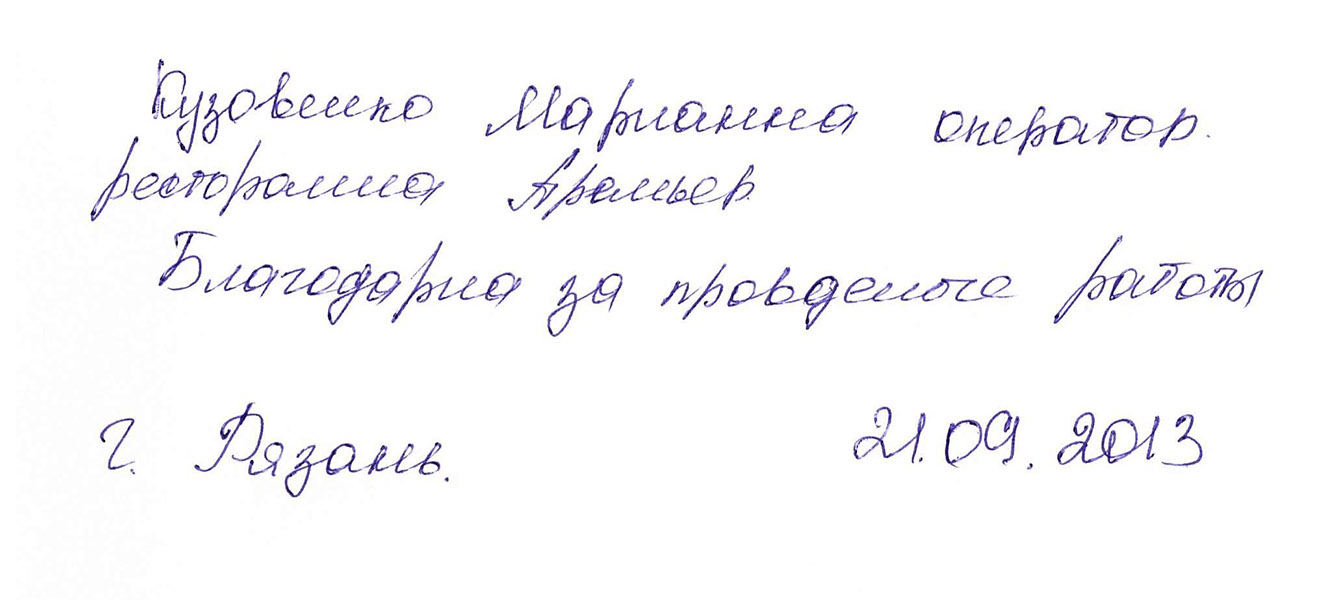 Кузовенко Марианна оператор.
ресторанна Арамьер.
Благодарна за проведеные работы
г. Рязань. 21.09.2013